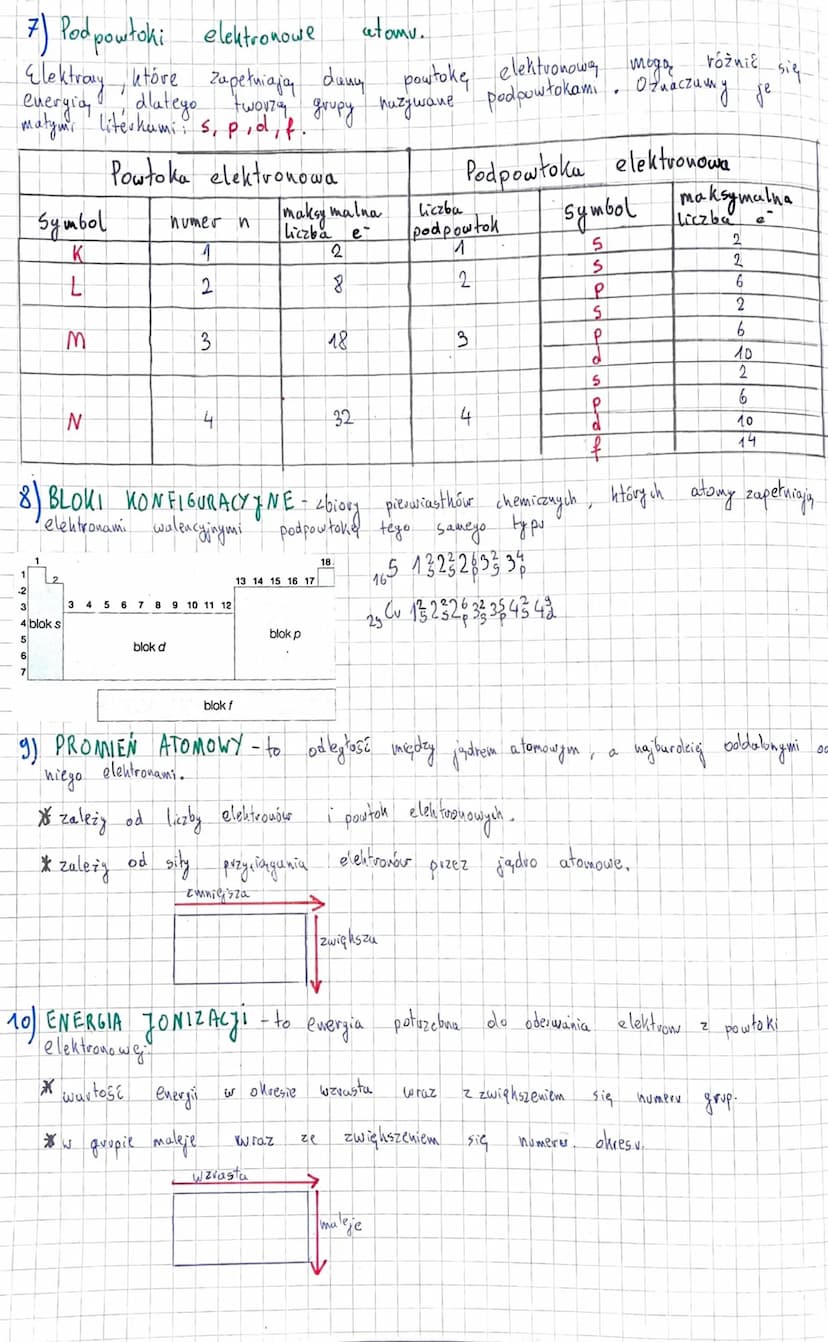 7) Podpowłoki elektronowe atomu.
Elektrony, które zapełniają daną powłokę elektronową mogą różnić się
energią, dlatego tworzą grupy nazywane podpowłokami. Oznaczamy je
małymi literkami: s, p, d, f.
Powłoka elektronowa Podpowłoka elektronowa
symbol numer n maksymalna liczba e⁻ liczba podpowłok symbol maksymalna liczba e⁻
K 1 2 1 s 2
L 2 8 2 s 2
p 6
M 3 18 3 s 2
p 6
d 10
N 4 32 4 s 2
p 6
d 10
f 14
8) BLOKI KONFIGURACYJNE - zbiory pierwiastków chemicznych, których atomy zapełniają
elektronami walencyjnymi podpowłokę tego samego typu
1 18
1 2 13 14 15 16 17
2
3 3 4 5 6 7 8 9 10 11 12
4 blok s
5 blok d blok p
6
7
blok f
₁₆S 1s² 2s² 2p⁶ 3s² 3p⁴
₂₉Cu 1s² 2s² 2p⁶ 3s² 3p⁵ 4s² 4d⁹
9) PROMIEŃ ATOMOWY - to odległość między jądrem atomowym, a najbardziej oddalonymi od
niego elektronami.
* zależy od liczby elektronów i powłok elektronowych.
* zależy od siły przyciągania elektronów przez jądro atomowe.
zmniejsza
zwiększa
10) ENERGIA JONIZACJI - to energia potrzebna do oderwania elektronu z powłoki
elektronowej
* wartość energii w okresie wzrasta wraz z zwiększeniem się numeru grup.
* w grupie maleje wraz ze zwiększeniem się numeru okresu.
wzrasta
maleje